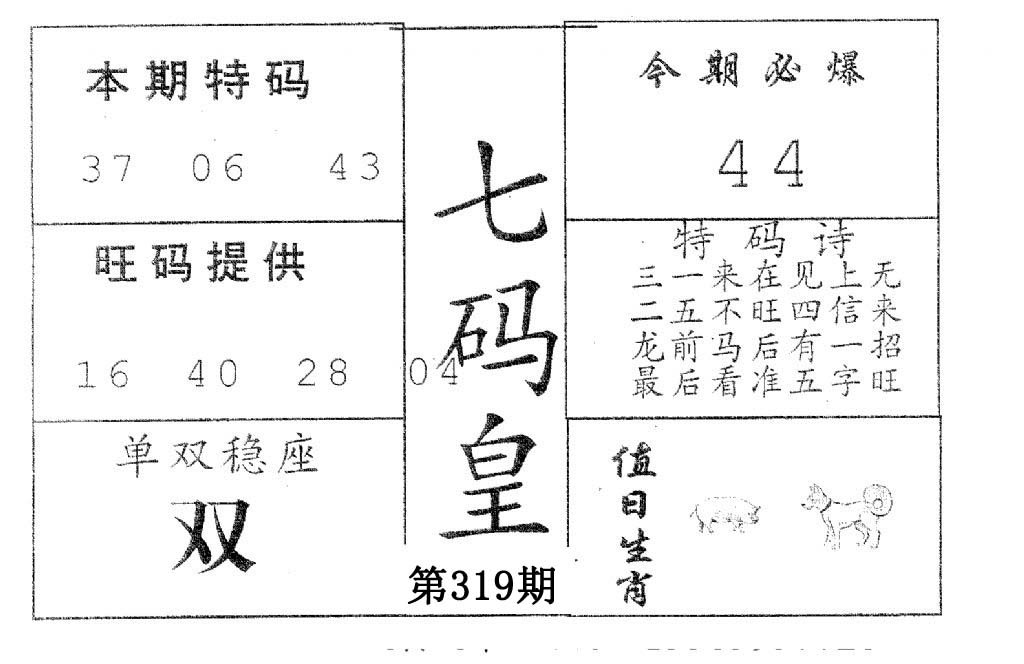 本期特码
37 06 43
旺码提供
16 40 28 04
单双稳座
双
七码皇
第319期
今期必爆
44
特码诗
三一来在见上无
二五不旺四信来
龙前马后有一招
最后看准五字旺
值日生肖